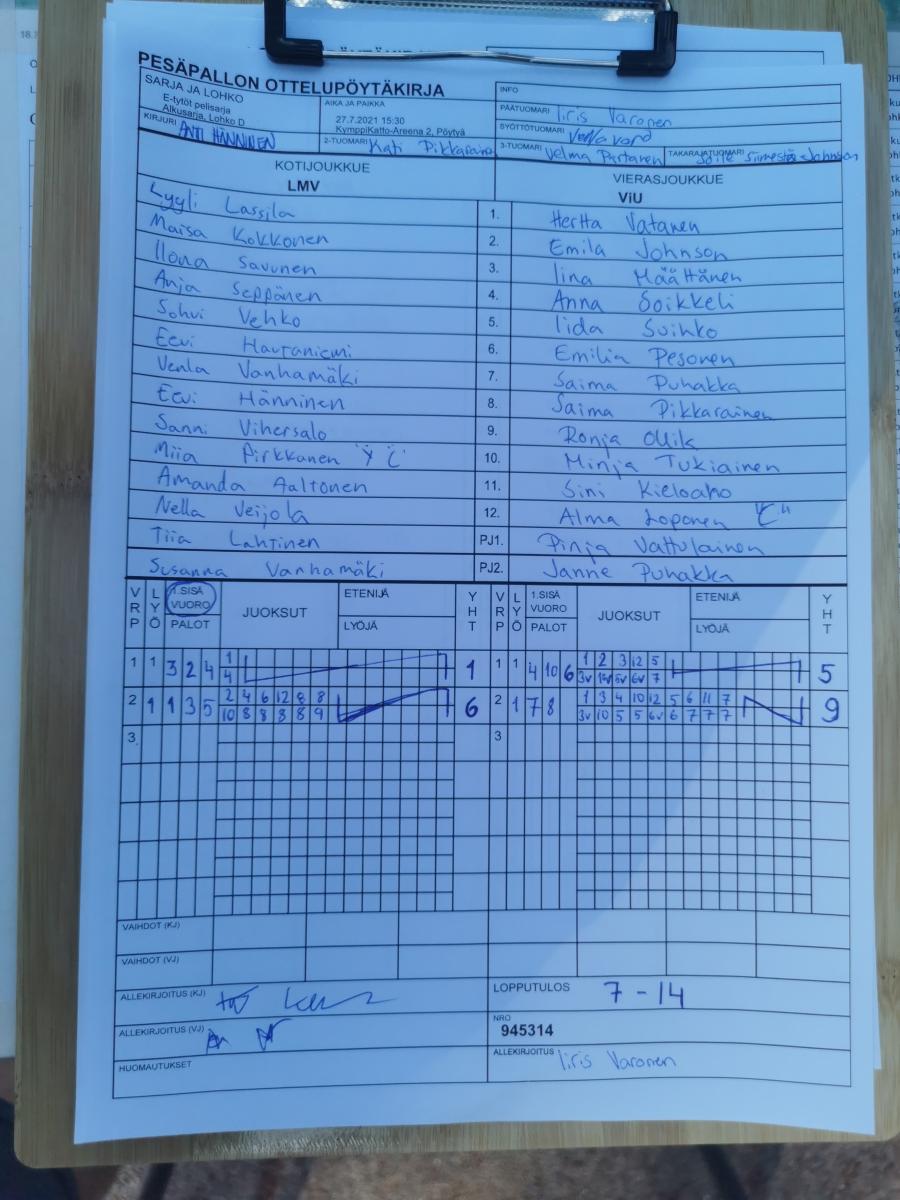 PESÄPALLON OTTELUPÖYTÄKIRJA
INFO
SARJA JA LOHKO
E-tytöt pelisarja
Alkusarja, Lohko D
AIKA JA PAIKKA
27.7.2021 15:30
KymppiKatto-Areena 2, Pöytyä
PÄÄTUOMARI Iiris Varonen
SYÖTTÖTUOMARI
KIRJURI ANTI HÄNNINEN
2-TUOMARI Kati Pikkarainen
3-TUOMARI Velma Partanen
TAKARAJATUOMARI Johnson
KOTIJOUKKUE
LMV
VIERASJOUKKUE
ViU
Lyyli Lassila 1. Hertta Vatanen
Maisa Kokkonen 2. Emila Johnson
Ilona Savunen 3. Iina Määttänen
Anja Seppänen 4. Anna Soikkeli
Sohvi Vehko 5. Iida Suihko
Eevi Hautaniemi 6. Emilia Pesonen
Venla Vanhamäki 7. Saima Puhakka
Eevi Hänninen 8. Saima Pikkarainen
Sanni Vihersalo 9. Ronja Ollik
Miia Pirkkanen "C" 10. Minja Tukiainen
Amanda Aaltonen 11. Sini Kieloaho
Nella Veijola 12. Alma Loponen "C"
Tiia Lahtinen PJ1. Pinja Vattulainen
Susanna Vanhamäki PJ2. Janne Puhakka
VRP LYÖ 1.SISÄ VUORO PALOT JUOKSUT ETENIJÄ LYÖJÄ YHT VRP LYÖ 1.SISÄ VUORO PALOT JUOKSUT ETENIJÄ LYÖJÄ YHT
1 1 3 2 4 1 1 1 1 4 10 6 1 2 3 12 5 5
4 3v 1v 5v 6v 7
2 1 1 3 5 2 4 6 12 8 8 6 2 1 7 8 1 3 4 10 12 5 6 11 7 9
10 8 8 8 8 9 3v 10 5 5 6v 6 7 7 7
3. 3
VAIHDOT (KJ)
VAIHDOT (VJ)
ALLEKIRJOITUS (KJ)
LOPPUTULOS 7 - 14
ALLEKIRJOITUS (VJ)
NRO
945314
HUOMAUTUKSET
ALLEKIRJOITUS Iiris Varonen